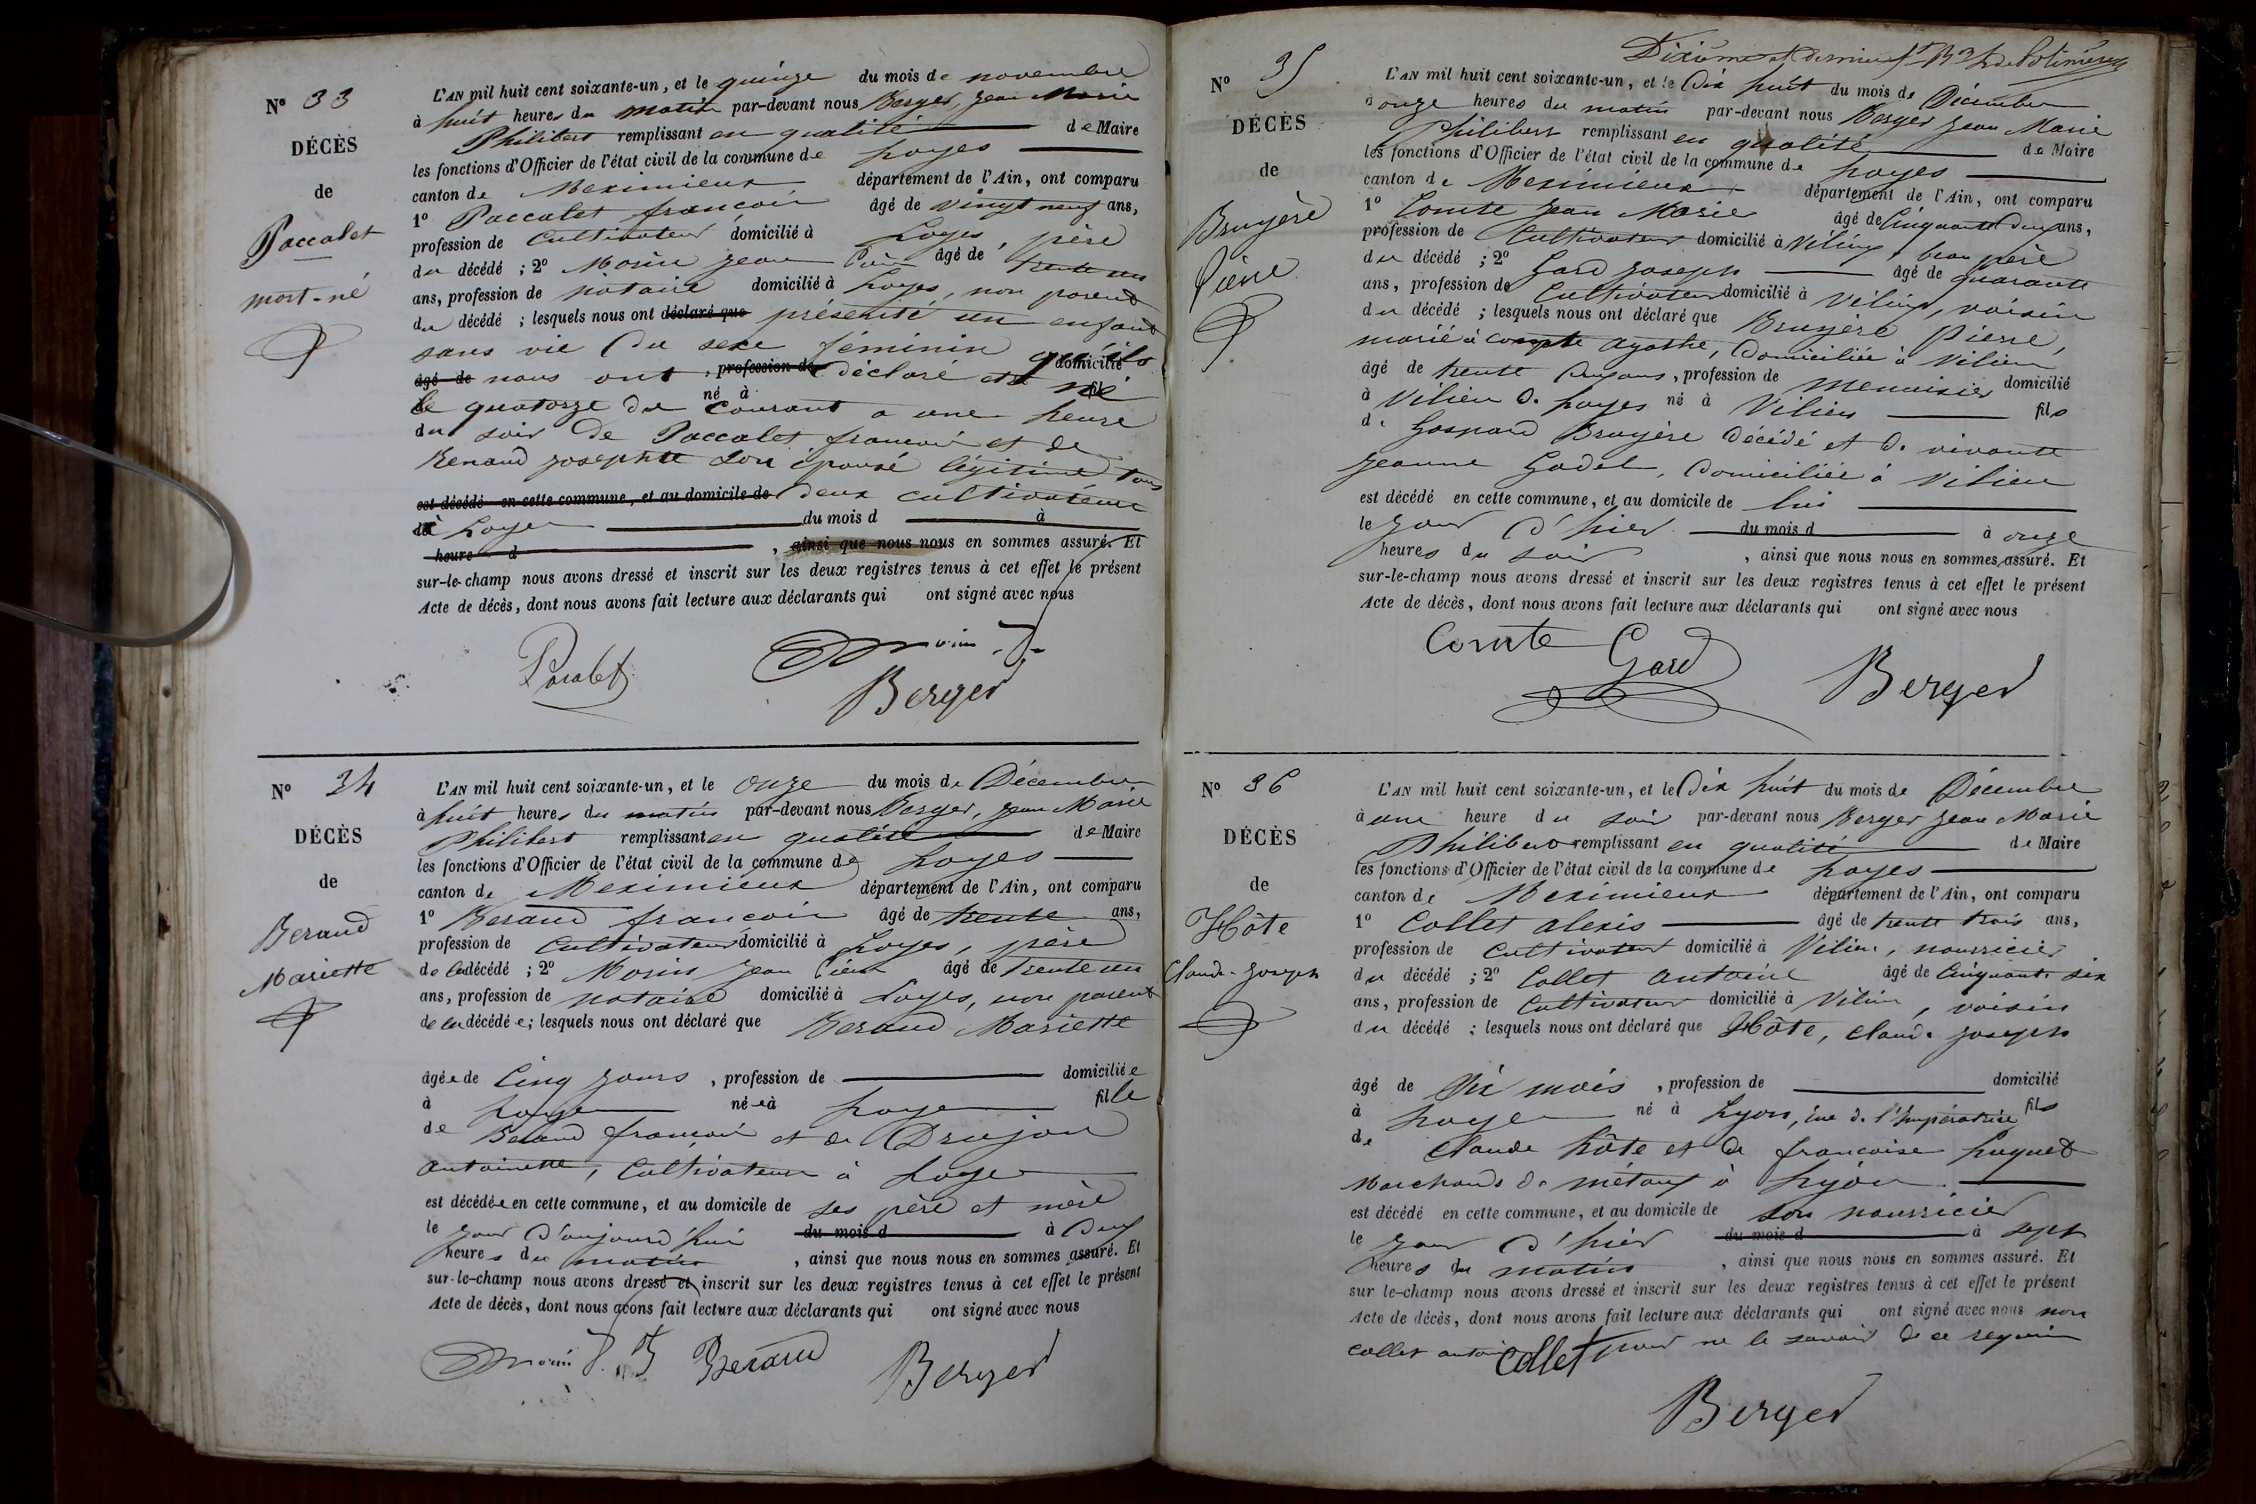 N° 33
DÉCÈS
de
Paccalet
mort-né
L'AN mil huit cent soixante-un, et le quinze du mois de novembre
à huit heures du matin par-devant nous Berger, Jean Marie
Philibert remplissant en qualité de Maire
les fonctions d'Officier de l'état civil de la commune de Loyes
canton de Meximieux département de l'Ain, ont comparu
1° Paccalet françois âgé de vingt neuf ans,
profession de Cultivateur domicilié à Loyes, père
du décédé ; 2° Morin Jean Pierre âgé de trente un
ans, profession de notaire domicilié à Loyes, non parent
du décédé ; lesquels nous ont déclaré que présenté un enfant
sans vie du sexe féminin qu'ils
âgé de nous ont , profession de déclaré domicilié né
le quatorze du né à courant a une heure
du soir de Paccalet françois et de
Renaud Josephte son épouse légitime tous
est décédé en cette commune, et au domicile de deux cultivateurs
à Loyes du mois d à
heure d , ainsi que nous nous en sommes assuré. Et
sur-le-champ nous avons dressé et inscrit sur les deux registres tenus à cet effet le présent
Acte de décès, dont nous avons fait lecture aux déclarants qui ont signé avec nous
Pacalet Morin
Berger
N° 34
DÉCÈS
de
Beraud
Mariette
L'AN mil huit cent soixante-un, et le onze du mois de Décembre
à huit heures du matin par-devant nous Berger, Jean Marie
Philibert remplissant en qualité de Maire
les fonctions d'Officier de l'état civil de la commune de Loyes
canton de Meximieux département de l'Ain, ont comparu
1° Beraud françois âgé de trente ans,
profession de Cultivateur domicilié à Loyes, père
de la décédé ; 2° Morin Jean Pierre âgé de trente un
ans, profession de notaire domicilié à Loyes, non parent
de la décédée ; lesquels nous ont déclaré que Beraud Mariette
âgée de Cinq jours , profession de domiciliée
à Loyes née à Loyes fille
de Beraud françois et de Drujon
antoinette, Cultivateurs à Loyes
est décédée en cette commune, et au domicile de ses père et mère
le jour d'aujourd'hui du mois d à deux
heures du matin , ainsi que nous nous en sommes assuré. Et
sur-le-champ nous avons dressé et inscrit sur les deux registres tenus à cet effet le présent
Acte de décès, dont nous avons fait lecture aux déclarants qui ont signé avec nous
Morin Beraud Berger
Dixième et dernier
N° 35
DÉCÈS
de
Bruyère
Pierre
L'AN mil huit cent soixante-un, et le Dix huit du mois de Décembre
à onze heures du matin par-devant nous Berger Jean Marie
Philibert remplissant en qualité de Maire
les fonctions d'Officier de l'état civil de la commune de Loyes
canton de Meximieux département de l'Ain, ont comparu
1° Comte Jean Marie âgé de Cinquante deux ans,
profession de Cultivateur domicilié à Vilieu, beau père
du décédé ; 2° Gard Joseph âgé de quarante
ans, profession de Cultivateur domicilié à Vilieu, voisin
du décédé ; lesquels nous ont déclaré que Bruyère Pierre,
marié à compte agathe, domiciliée à Vilieu
âgé de trente deux ans, profession de Menuisier domicilié
à Vilieu d. Loyes né à Vilieu fils
d. Gaspard Bruyère décédé et d. vivante
Jeanne Godet, domiciliée à Vilieu
est décédé en cette commune, et au domicile de lui
le jour d'hier du mois d à onze
heures du soir , ainsi que nous nous en sommes assuré. Et
sur-le-champ nous avons dressé et inscrit sur les deux registres tenus à cet effet le présent
Acte de décès, dont nous avons fait lecture aux déclarants qui ont signé avec nous
Comte Gard Berger
N° 36
DÉCÈS
de
Hôte
Claude-Joseph
L'AN mil huit cent soixante-un, et le Dix huit du mois de Décembre
à une heure du soir par-devant nous Berger Jean Marie
Philibert remplissant en qualité de Maire
les fonctions d'Officier de l'état civil de la commune de Loyes
canton de Meximieux département de l'Ain, ont comparu
1° Collet alexis âgé de trente trois ans,
profession de Cultivateur domicilié à Vilieu, nourricier
du décédé ; 2° Collet antoine âgé de Cinquante six
ans, profession de Cultivateur domicilié à Vilieu, voisin
du décédé ; lesquels nous ont déclaré que Hôte, Claude Joseph
âgé de Six mois , profession de domicilié
à Loyes né à Lyon, rue de l'Impératrice fils
de Claude hôte et de françoise Luquet
Marchands de métaux à Lyon
est décédé en cette commune, et au domicile de son nourricier
le jour d'hier du mois d à sept
heures du matin , ainsi que nous nous en sommes assuré. Et
sur-le-champ nous avons dressé et inscrit sur les deux registres tenus à cet effet le présent
Acte de décès, dont nous avons fait lecture aux déclarants qui ont signé avec nous non
Collet antoine pour ne le savoir de ce requis
Collet
Berger